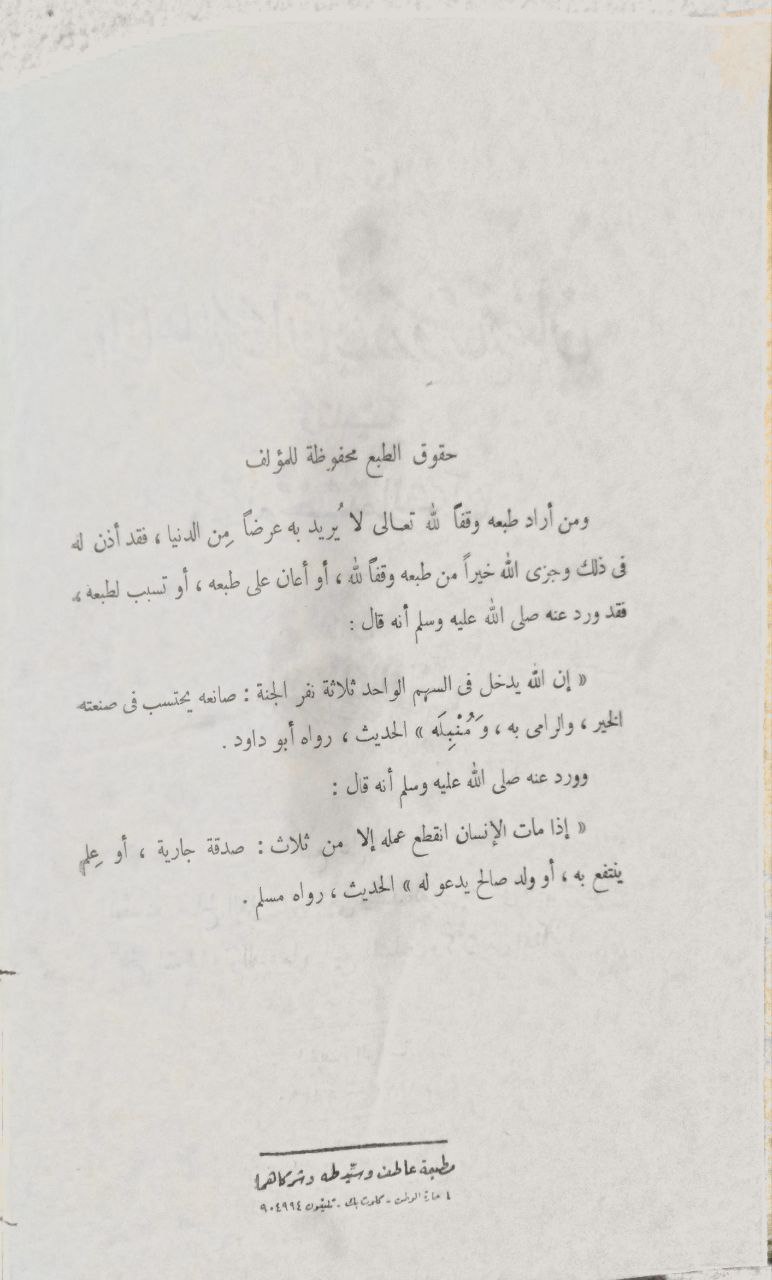 حقوق الطبع محفوظة للمؤلف
ومن أراد طبعه وقفاً لله تعالى لا يُريد به عرضاً مِن الدنيا ، فقد أذن له
فى ذلك وجزى الله خيراً من طبعه وقفاً لله ، أو أعان على طبعه ، أو تسبب لطبعه ،
فقد ورد عنه صلى الله عليه وسلم أنه قال :
« إن الله يدخل فى السهم الواحد ثلاثة نفر الجنة : صانعه يحتسب فى صنعته
الخير ، والرامى به ، وَمُنْبِلَه » الحديث ، رواه أبو داود .
وورد عنه صلى الله عليه وسلم أنه قال :
« إذا مات الإنسان انقطع عمله إلا من ثلاث : صدقة جارية ، أو عِلم
ينتفع به ، أو ولد صالح يدعو له » الحديث ، رواه مسلم .
مطبعة عاطف وسيّد طه وشركاهما
٤ حارة الوطن - كلوت بك - تليفون ٩٠٤٩٩٤